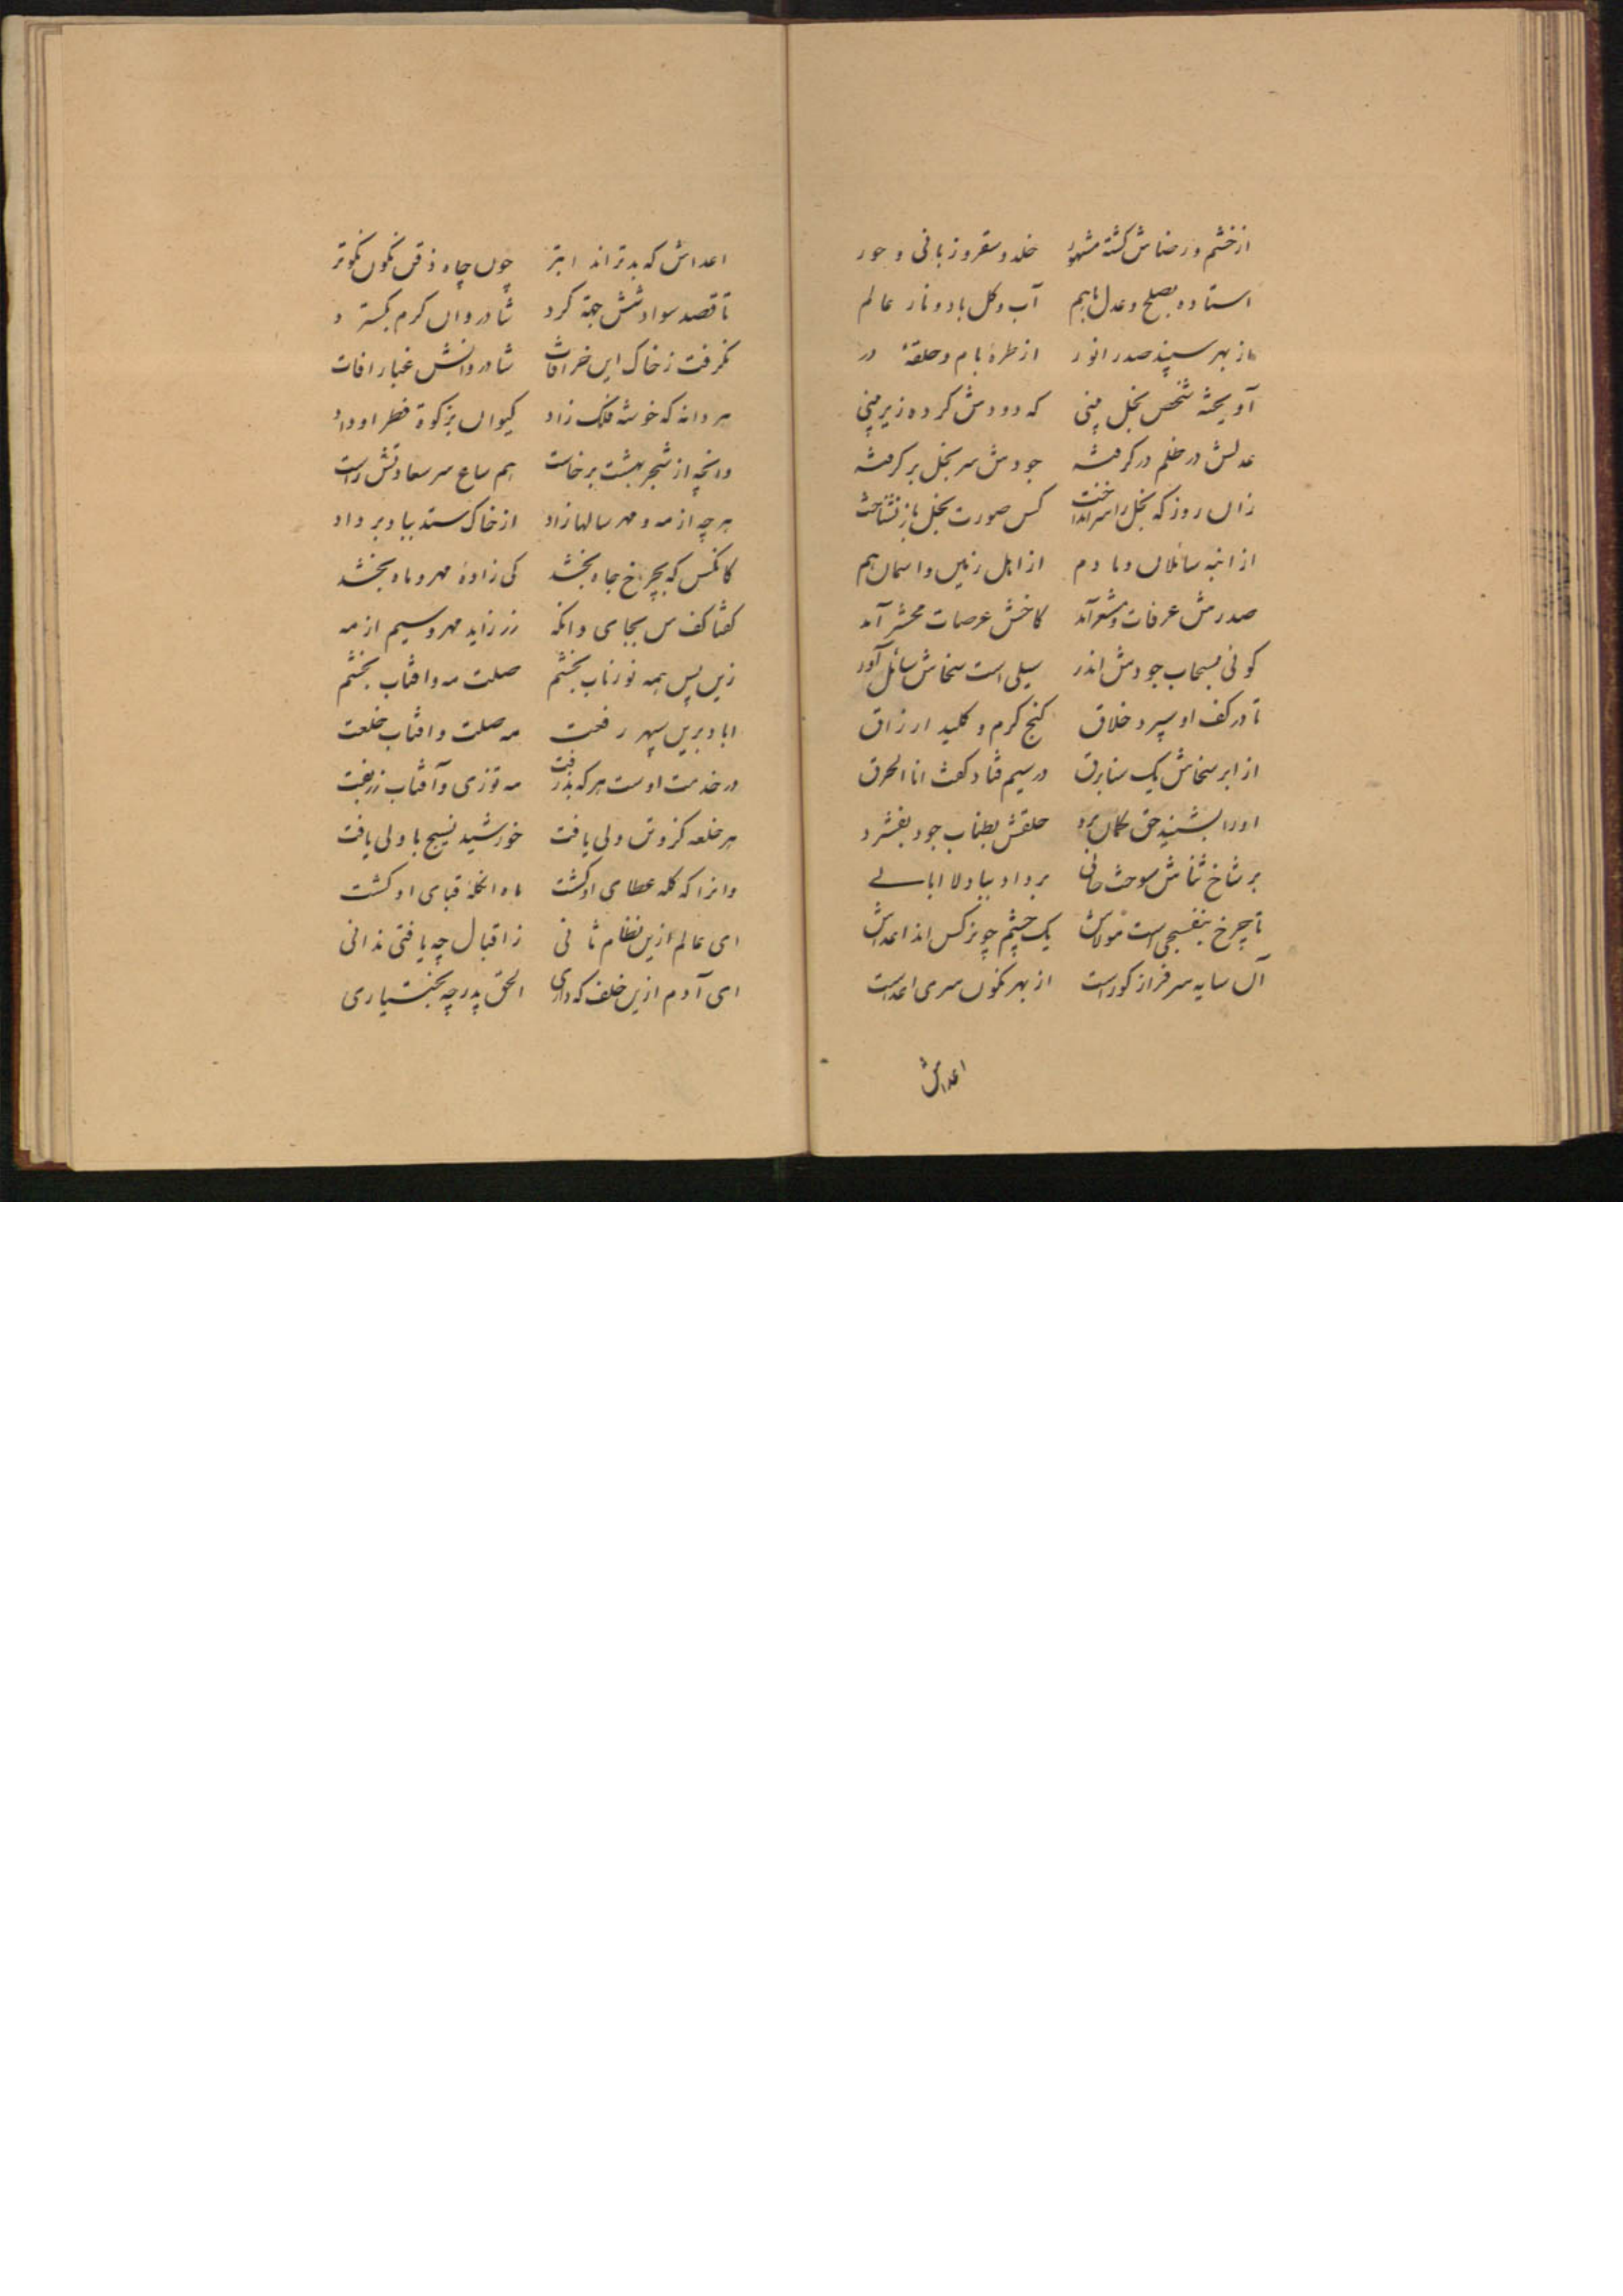 از خشم و رضاش گشته مشهور خلد و سقر و زبانی و حور
استاده بصلح و عدل باهم آب و گل باد و نار عالم
از بهر سپند صدر انور از طرهٔ بام و حلقهٔ در
آویخته شخص بخل بینی که دودش کرده زیر بینی
عدلش در ظلم در گرفته جودش سر بخل بر گرفته
زان روز که بخل را سر انداخت کس صورت بخل باز نشناخت
از انبه سائلان دمادم از اهل زمین و اسمان هم
صدرش عرفات و مشعر آمد کاخش عرصات محشر آمد
کوئی بسحاب جودش اندر سیلی است سخاش سائل آور
تا در کف او سپرد خلاق کنج کرم و کلید ارزاق
از ابر سخاش یک سنا برق در سیم فتاد گفت انا الحرق
او را بشنید حق گمان برد حلقش بطناب جود بفشرد
بر شاخ ثناش سوخت حالی برداد بباد لا ابالے
تا چرخ بنفسجی است مولاش یک چشم چو نرکس اند اعداش
آن سایه سرفراز کوراست از بهر نگون سری اعداست
اعداش
اعداش که بدتراند ابتر چون چاه ذقن نگون نکوتر
تا قصد سواد شش جهة کرد شادروان کرم بگسترد
نگرفت ز خاک این خرافات شادروانش غبار افات
هر دانه که خوشه فلک زاد کیوان بزکوة فطر او داد
وانچه از شجر بهشت برخاست هم ساع سر سعادتش راست
هرچه از مه و مهر سالها زاد از خاک ستد بباد برداد
کانکس که بچرخ جاه بخشد کی زادهٔ مهر و ماه بخشد
گفتا کف من بجای وانکه زر زاید مهر و سیم از مه
زین پس همه نوزناب بخشم صلت مه و افتاب بخشم
اباد برین سپهر رفعت مه صلت و افتاب خلعت
در خدمت اوست هر که بذرفت مه توزی و آفتاب زربفت
هر خلعه کزو تن ولی یافت خورشید نسیج با ولی یافت
وانرا که کله عطای او کشت ماه انکلهٔ قبای او کشت
ای عالم ازین نظام ثانی ز اقبال چه یافتی ندانی
ای آدم ازین خلف که داری الحق پدر چه بختیاری